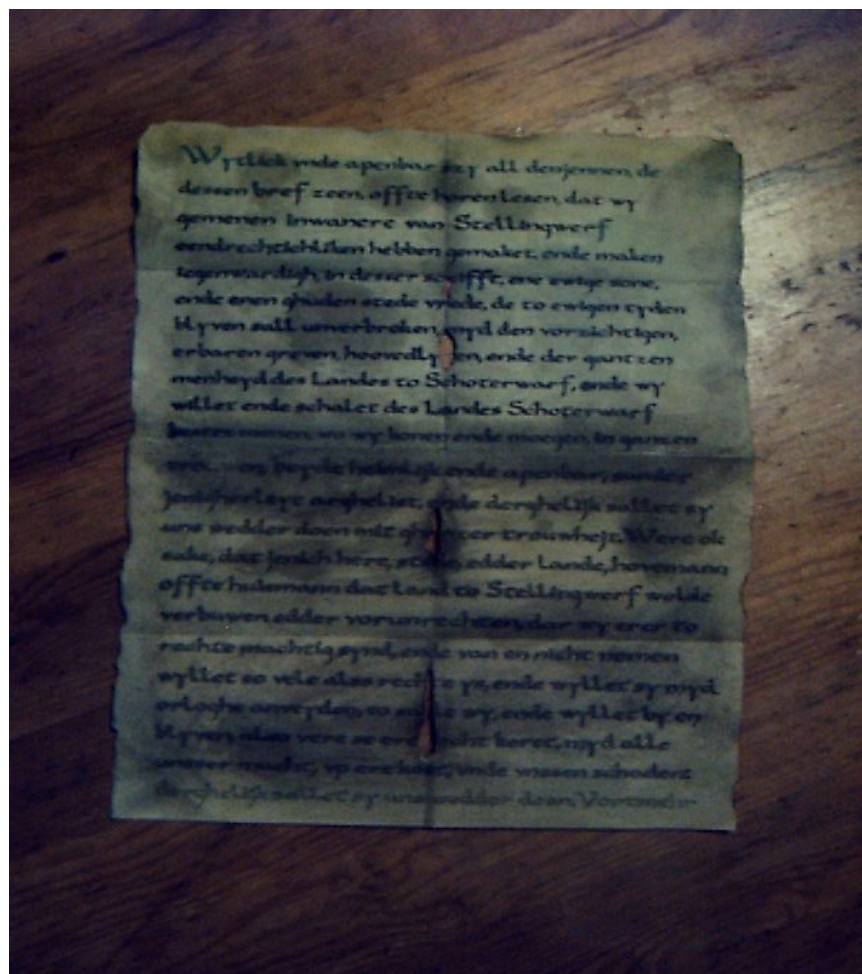 Wytlick vnde apenbar szy all denjennen, de
dessen bref zeen, offte horen lesen, dat wy
gemenen inwanere van Stellingwerf
eendrechtichliken hebben gemaket, ende maken
tegenwardigh, in desser scrifft, ene ewige zone,
ende enen ghuden stede vrede, de to ewigen tyden
blyven sall unverbroken, myd den vorzichtigen,
erbaren greven, hoovedlyden, ende der gantzen
menheyd des Landes to Schoterwarf, ende wy
willet ende schalet des Landes Schoterwarf
wy konen ende moegen, in ganzen
beyde heimlijk ende apenbar, sunder
jenigherleye arghelist, ende derghelijk sallet sy
uns wedder doen mit ghanzer trouwhejt. Were ok
sake, dat jenich here, stede, edder Lande, hovemann
offte husmann dat Land to Stellingwerf wolde
verbuwen edder vorunrechten, dar wy erer to
rechte machtig synd, ende van en nicht nemen
wyllet so vele alse rechte ys, ende wyllet sy myd
orloghe anveyden, so sulle wy, ende wyllet by en
blyven, also vere se ere nicht koret, myd alle
unser macht, up ere kost, vnde unsen schaden:
derghelijk sallet sy uns wedder doen, Vortmehr